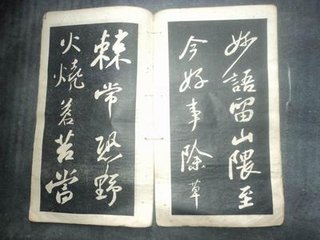 妙語留山隈至
今好事除草
棘常恐野
火燒若苔嘗